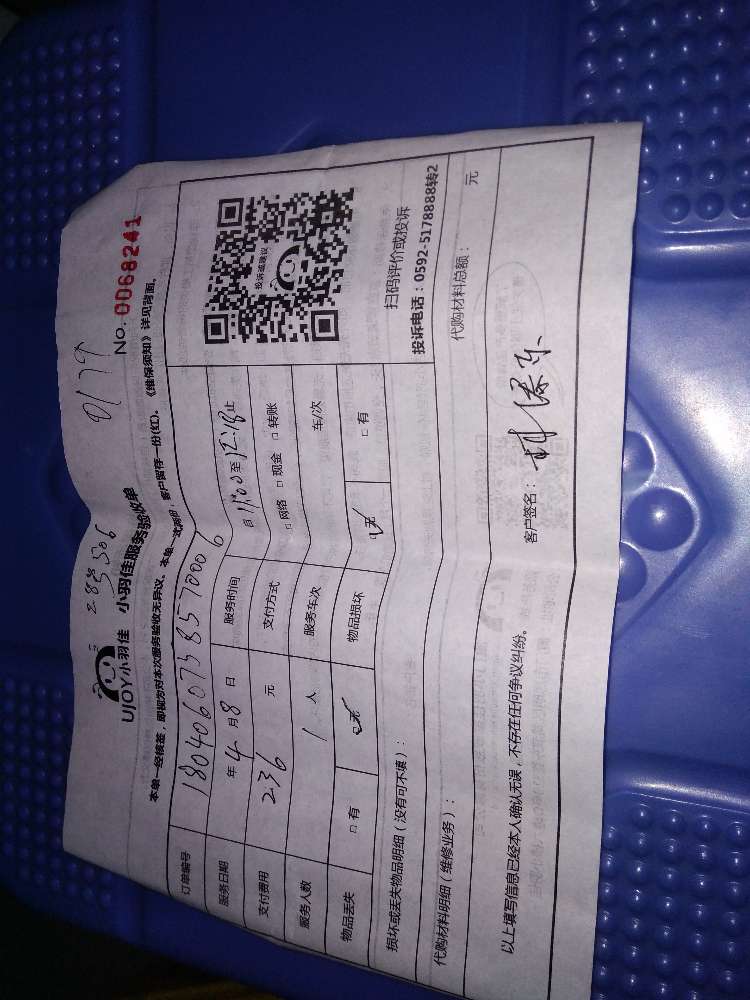 283506
0179
UJOY小羽佳 小羽佳服务验收单
No. 0068241
本单一经核签,即视为对本次服务验收无异议。本单一式两份,客户留存一份(红)。《维保须知》详见背面。
订单编号 1804060738570006
服务日期 年 4 月 8 日 服务时间 自 11:00 至 12:18 止
支付费用 236 元 支付方式 □ 网络 □ 现金 □ 转账
服务人数 1 人 服务车次 车/次
物品丢失 □ 有 ☑ 无 物品损坏 ☑ 无 □ 有
投诉或建议
扫码评价或投诉
投诉电话:0592-5178888转2
损坏或丢失物品明细(没有可不填):
代购材料明细(维修业务): 代购材料总额: 元
以上填写信息已经本人确认无误,不存在任何争议纠纷。 客户签名: